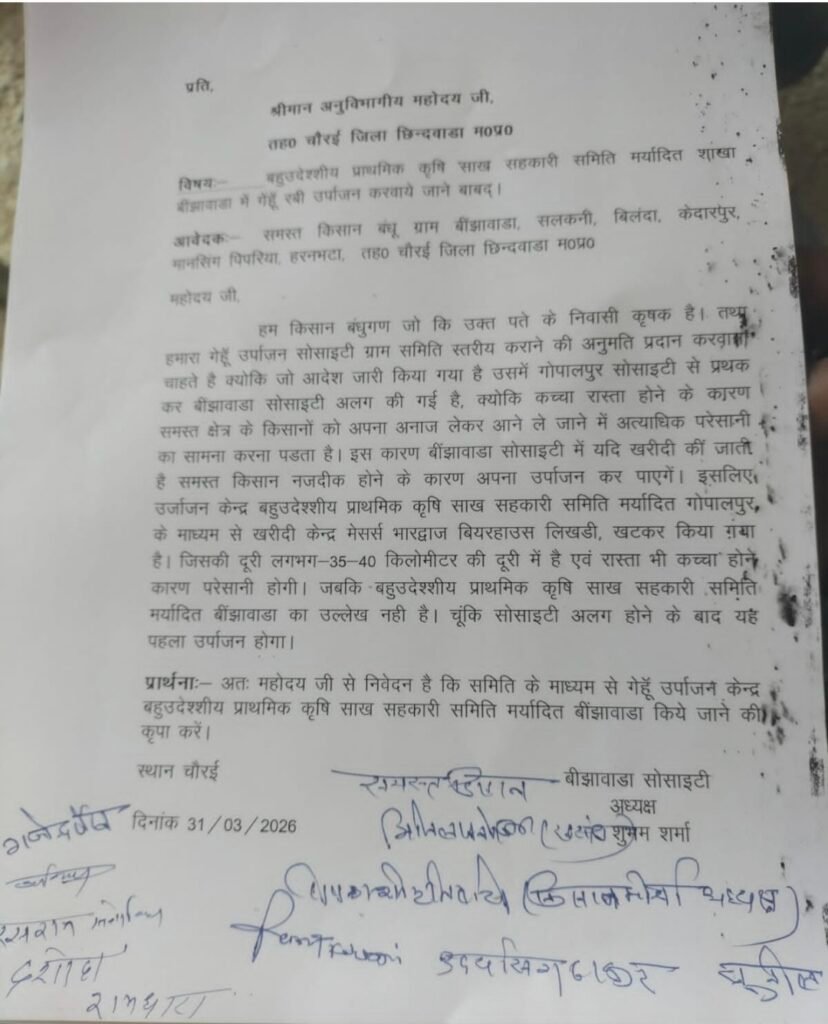 प्रति,
श्रीमान अनुविभागीय महोदय जी,
तह0 चौरई जिला छिन्दवाडा म0प्र0
विषयः– बहुउदेश्यीय प्राथमिक कृषि साख सहकारी समिति मर्यादित शाखा
बींझावाडा में गेहूँ रबी उर्पाजन करवाये जाने बाबद्।
आवेदकः– समस्त किसान बंधू ग्राम बींझावाडा, सलकनी, बिलंदा, केदारपुर,
मानसिंग पिपरिया, हरनभटा, तह0 चौरई जिला छिन्दवाडा म0प्र0
महोदय जी,
हम किसान बंधुगण जो कि उक्त पते के निवासी कृषक है। तथा
हमारा गेहूँ उर्पाजन सोसाइटी ग्राम समिति स्तरीय कराने की अनुमति प्रदान करवाना
चाहते है क्योकि जो आदेश जारी किया गया है उसमें गोपालपुर सोसाइटी से प्रथक
कर बींझावाडा सोसाइटी अलग की गई है, क्योकि कच्चा रास्ता होने के कारण
समस्त क्षेत्र के किसानों को अपना अनाज लेकर आने ले जाने में अत्याधिक परेसानी
का सामना करना पडता है। इस कारण बींझावाडा सोसाइटी में यदि खरीदी कीं जाती
है समस्त किसान नजदीक होने के कारण अपना उर्पाजन कर पाएगें। इसलिए
उर्जाजन केन्द्र बहुउदेश्यीय प्राथमिक कृषि साख सहकारी समिति मर्यादित गोपालपुर,
के माध्यम से खरीदी केन्द्र मेसर्स भारद्वाज बियरहाउस लिखडी, खटकर किया गया
है। जिसकी दूरी लगभग–35–40 किलोमीटर की दूरी में है एवं रास्ता भी कच्चा होने
कारण परेसानी होगी। जबकि बहुउदेश्यीय प्राथमिक कृषि साख सहकारी समिति
मर्यादित बींझावाडा का उल्लेख नही है। चूंकि सोसाइटी अलग होने के बाद यह
पहला उर्पाजन होगा।
प्रार्थनाः– अतः महोदय जी से निवेदन है कि समिति के माध्यम से गेहूँ उर्पाजन केन्द्र
बहुउदेश्यीय प्राथमिक कृषि साख सहकारी समिति मर्यादित बींझावाडा किये जाने की
कृपा करें।
स्थान चौरई
समस्त किसान बीझावाडा सोसाइटी
अध्यक्ष
दिनांक 31/03/2026
शुभम शर्मा
(किसान मोर्चा अध्यक्ष)
उदयसिंग ठाकुर